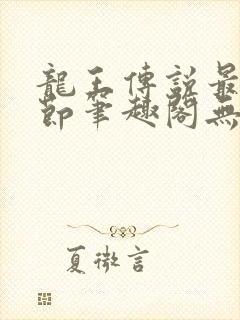 龍王傳説最
節筆趣閣無
夏微言